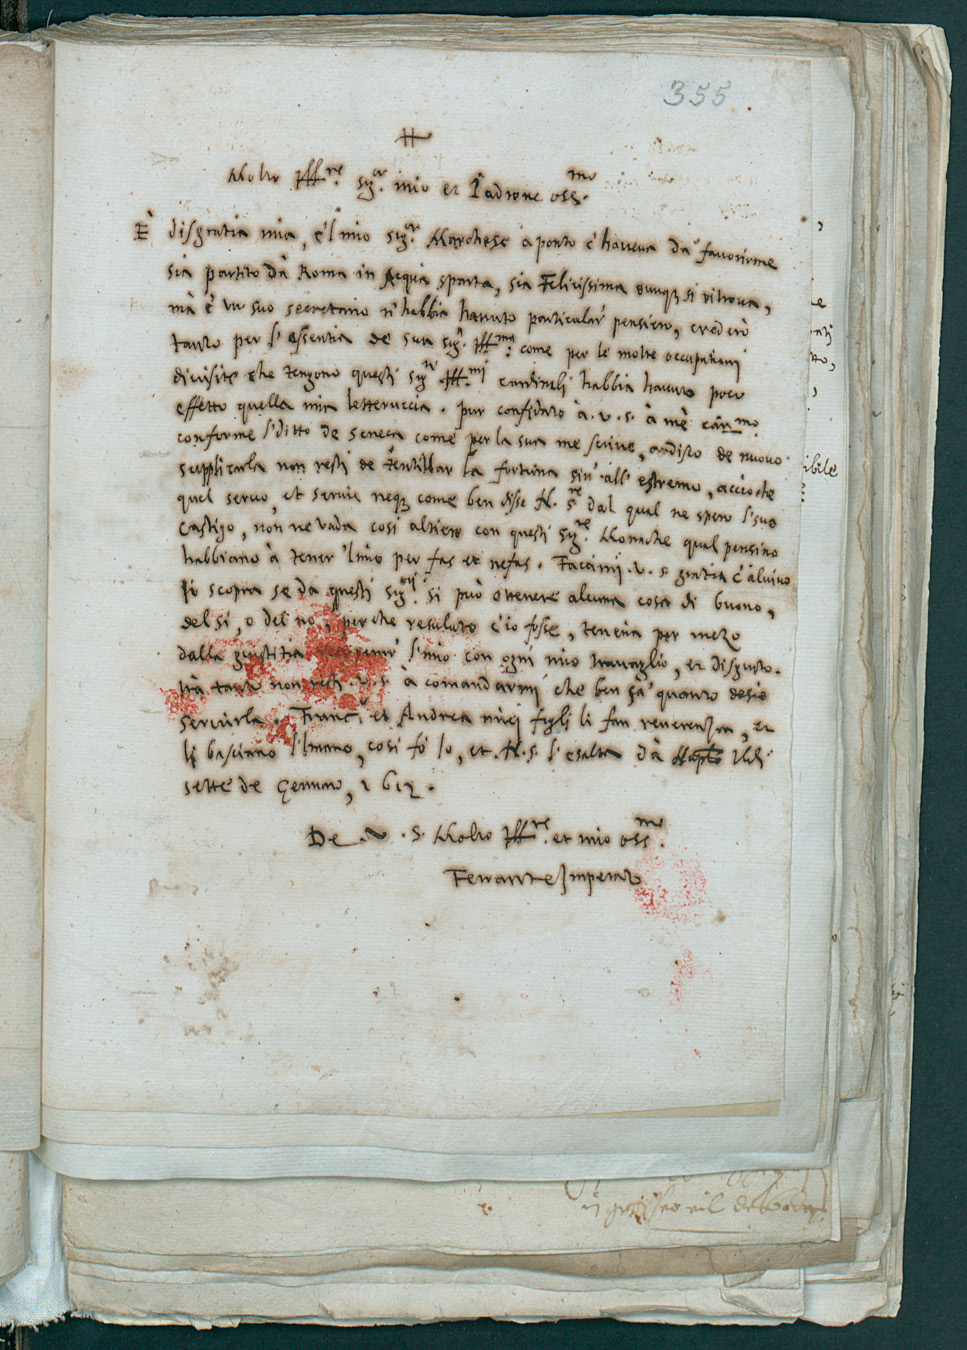 355
Molto Ill.re sig.r mio et Padrone oss.mo
È disgratia mia, ch'l mio sig.r Marchese a ponto c'haveva da favorirme
sia partito dà Roma in Acqua sparta, sia Felicissima ounq; si ritrova,
mà c'un suo secretario n'habbia havuto particular pensiero, crederò
tanto per l'assentia de sua sig.a Ill.ma come per le molte occupationi
divisite che tengono questi sig.ri Ill.mi cardinali habbia havuto poco
effetto quella mia letteruccia. pur confidato à v. s. à mè car.mo
conforme l'ditto de Seneca come per la sua me scrive, ardisco de nuovo
supplicarla non resti de tentar la fortuna sin'all'estremo, accioche
quel servo, et servie neq; come ben disse N. s.re dal qual ne spero l'suo
castigo, non ne vada cosi altiero con questi sig.re Monache qual pensino
habbiano à tener l'mio per fas et nefas. Faccimi v. s. gratia
si scopra se da questi sig.ri si può ottenere alcuna cosa di buono,
del si, o del no, perche resoluto ch'io fosse, teneria per mezo
dalla giustitia l'mio con ogni mio travaglio, et disgusto.
frà tanto non resti v. s. à comandarmi che ben sa quanto desio
servirla. Franc.o et Andrea miei figli li fan reverenza, et
li basciano l'mano, cosi fò Io, et N. s. l'esalta dà Nap. lli
sette de Gennaro, 1612.
De V. S. Molto Ill.re et mio oss.mo
Ferrante Imperato